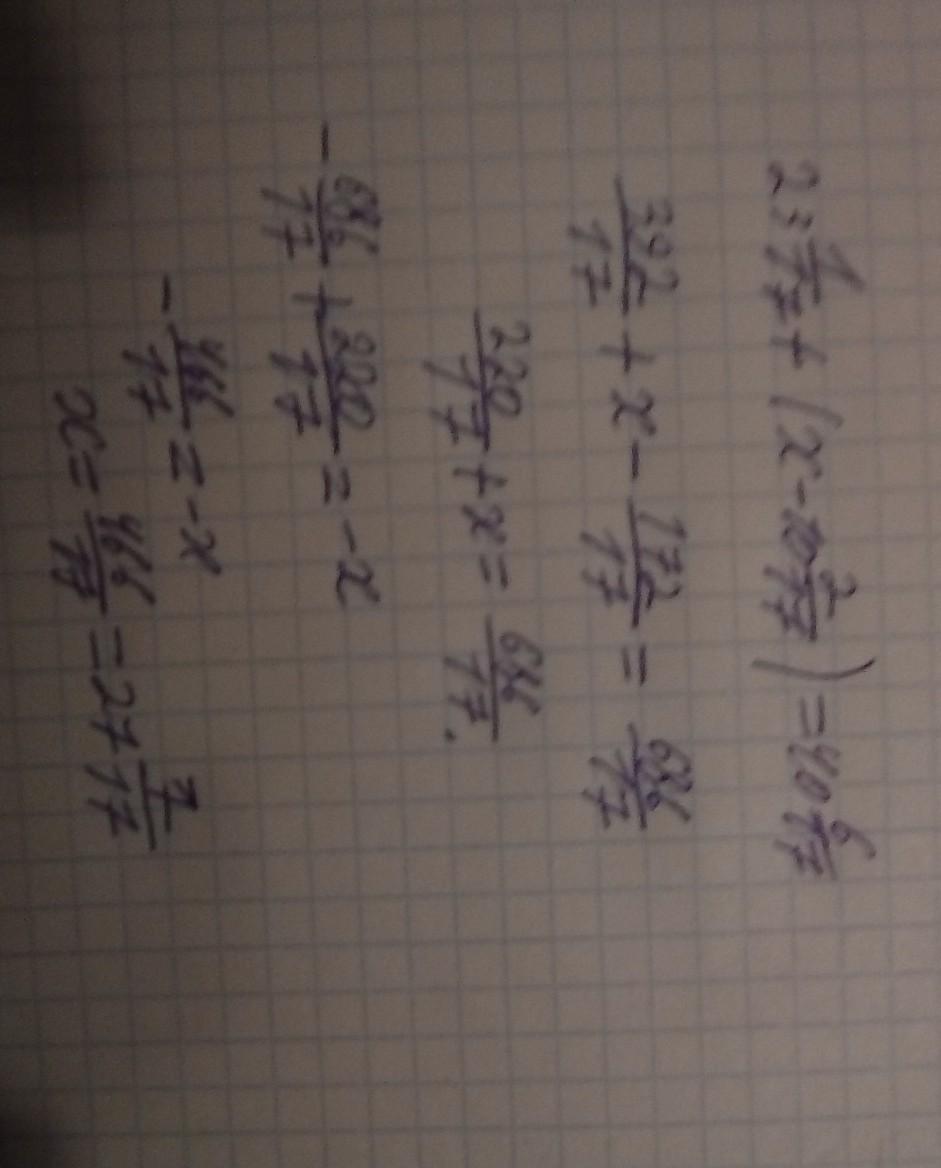 23 1/17 + (x - 10 2/17) = 40 6/17
392/17 + x - 172/17 = 686/17
220/17 + x = 686/17.
- 686/17 + 220/17 = -x
- 466/17 = -x
x = 466/17 = 27 7/17